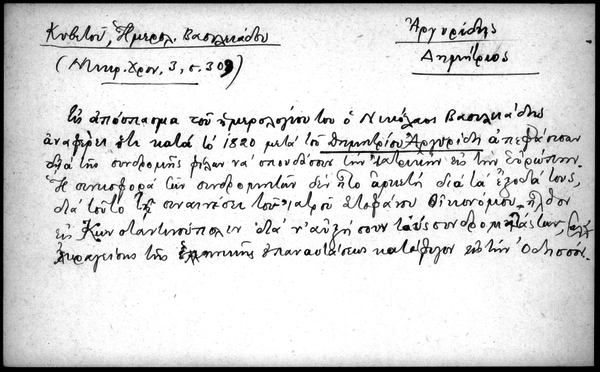 Κυβετοῦ, Ἡμερολ. Βασιλειάδου
Ἀργυρίδης
Δημήτριος
(Μικρ. Χρον, 3, σ. 309)
Εἰς ἀπόσπασμα τοῦ ἡμερολογίου του ὁ Νικόλαος Βασιλειάδης
ἀναφέρει ὅτι κατά τό 1820 μετά τοῦ Δημητρίου Ἀργυρίδη ἀπεφάσισαν
διά τῆς συνδρομῆς φίλων νά σπουδάσουν τήν ἰατρικήν εἰς τήν Εὐρώπην.
Ἡ συνεισφορά τῶν συνδρομητῶν δέν ἦτο ἀρκετή διά τά ἔξοδά τους,
διά τοῦτο τῇ συναινέσει τοῦ ἰατροῦ Στεφάνου Οἰκονόμου ἦλθον
εἰς Κωνσταντινούπολιν διά ν' αὐξήσουν τούς συνδρομητάς των,
ἐκραγείσης τῆς ἑλληνικῆς ἐπαναστάσεως κατέφυγον εἰς τήν Ὀδησσόν.